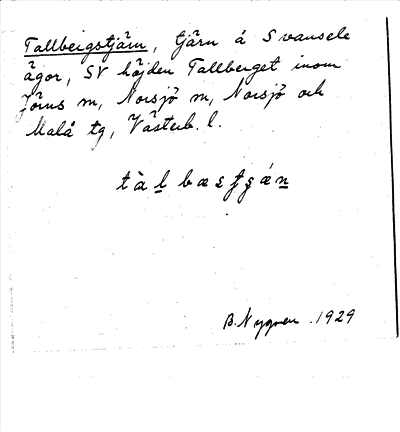 Tallbergstjärn, tjärn å Svansele
ägor, SV höjden Tallberget inom
Jörns m, Norsjö m, Norsjö och
Malå tg, Västerb. l.
B. Nygren. 1929